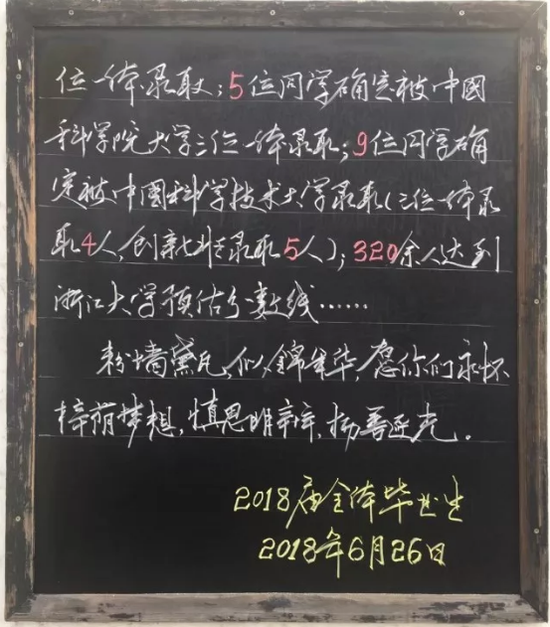 位一体录取；5位同学确定被中國
科学院大学三位一体录取；9位同学确
定被中國科学技术大学录取（三位一体录
取4人，创新班录取5人）；320余人达到
浙江大学预估分数线……
粉墙黛瓦，似锦年华，愿你们永怀
梓荫梦想，慎思明辨，扬善逐光。
2018届全体毕业生
2018年6月26日